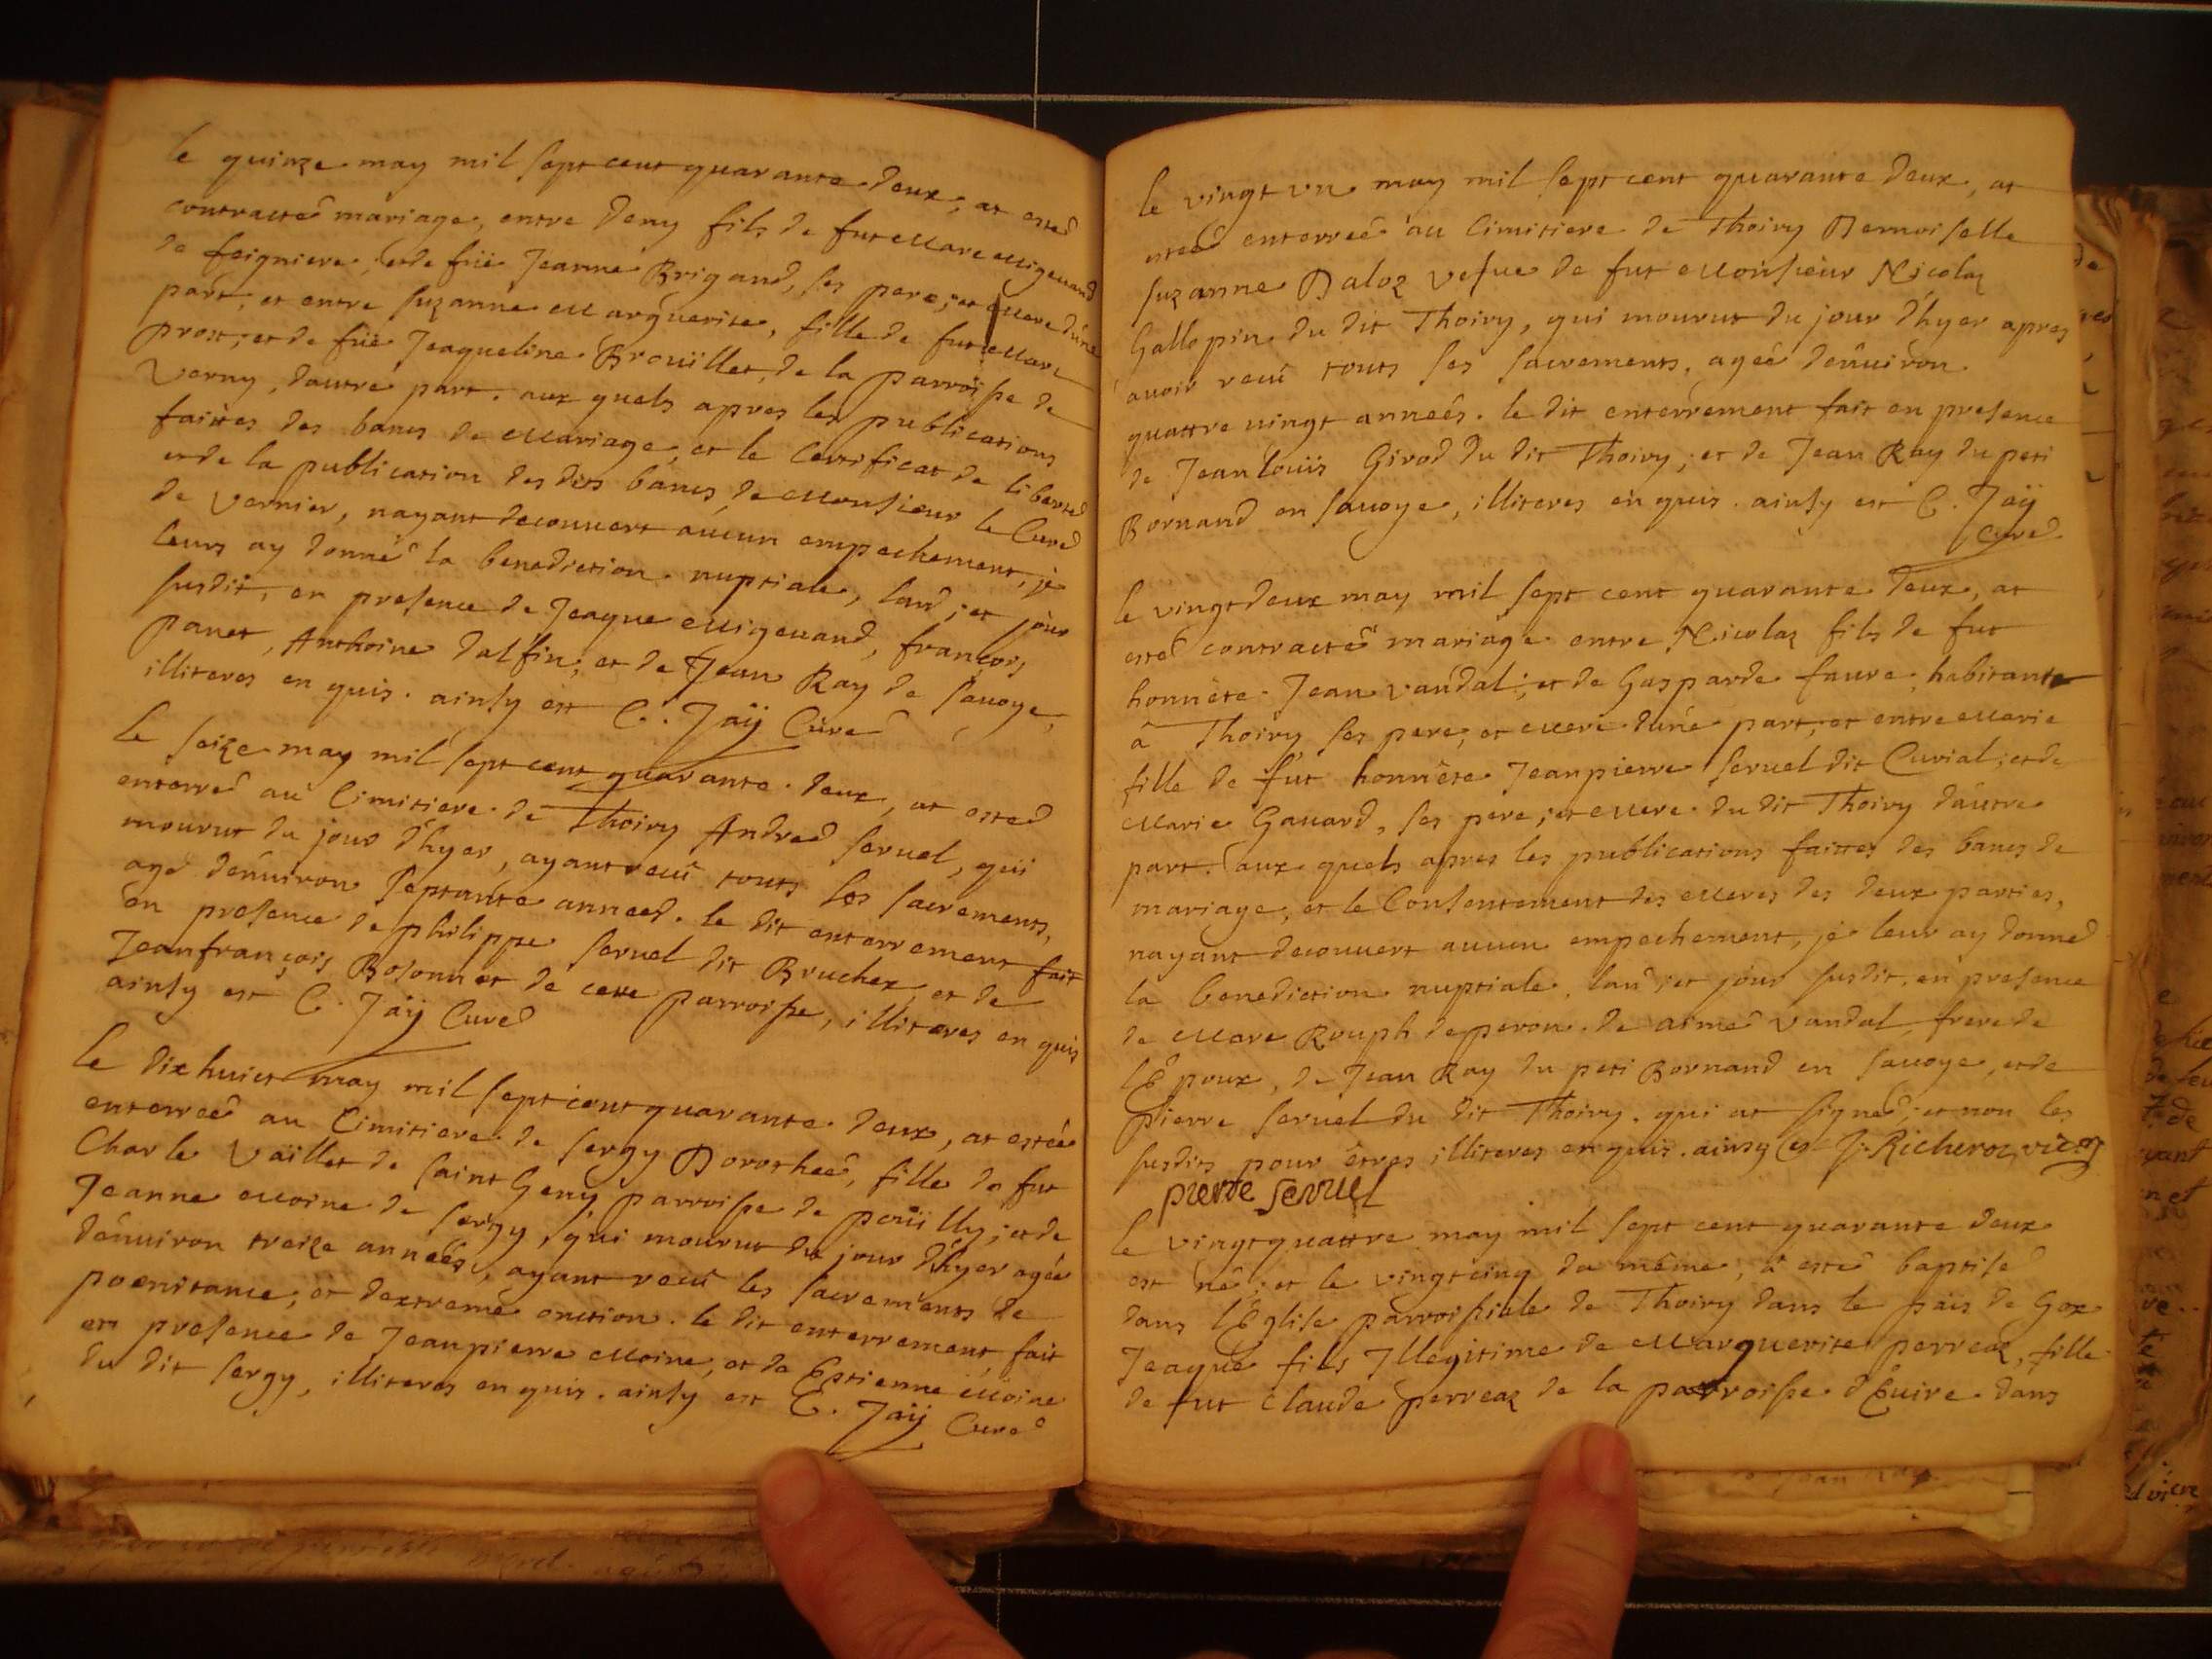 le quinze may mil sept cent quarante deux, at estéd
contractéd mariage, entre Deny fils de fut Marc Migeuand
de feigniere, et de füe Jeanne Brigand, ses pere, et Mere d'une
part, et entre Suzanne Marguerite, fille de fut Marc
prost, et de füe Jeaqueline Broüillet, de la parroisse de
Verny, dautre part. aux quels apres les publications
faittes des bancs de Mariage, et le Certificat de libertéd
et de la publication des dits bancs de Monsieur le Curéd
de Vernier, nayant decouuert aucun empechement, je
leurs ay donné la benediction nuptiale, land, et jour
susdit, en presence de Jeaque Migeuand, françois
panet, Anthoine Dalfin, et de Jean Ray de sauoye,
illiteres en quis. ainsy est C. Jaÿ Curé
Le seize may mil sept cent quarante deux, at estéd
enterréd au Cimitiere de Thoiry Andréd seruel, qui
mourut du jour d'hyer, ayant reçû touts les sacrements,
agé dénuiron septante annéed. le dit enterrement fait
en presence de philippe seruel dit Bruchex, et de
Jeanfrançois Bosonnet de cete parroisse, illiteres en quis
ainsy est C. Jaÿ Curéd
Le dixhuict may mil sept cent quarante deux, at estée
enterréed au Cimitiere de sergy Dorothée, fille de fut
Charle Vaillet de saint Geny parroisse de poüilly, et de
Jeanne Moine de sergy, qui mourut du jour d'hyer agée
dénuiron treize années, ayant reçû les sacrements de
poenitance, et dextreme onction. le dit enterrement fait
en presence de Jeanpierre Moine, et de Estienne Moine
du dit sergy, illiteres en quis. ainsy est C. Jaÿ Curéd
le vingt vn may mil sept cent quarante deux, at
estéd enterreé au Cimitiere de Thoiry Demoiselle
suzanne Daloz vefue de fut Monsieur Nicolaz
Gallopin du dit Thoiry, qui mourut du jour d'hyer apres
auoir reçû touts ses sacrements, ageé dénuiron
quattre vingt anneés. le dit enterrement fait en presence
de Jeanloüis Girod du dit Thoiry, et de Jean Ray du peti
Bornand en sauoye, illiteres en quis. ainsy est C. Jaÿ
Curéd.
le vingtdeux may mil sept cent quarante deux, at
estéd contractéd mariage entre Nicolaz fils de fut
honnète Jean Vandal, et de Gasparde faure habitante
â Thoiry ses pere, et Mere d'une part, et entre Marie
fille de fut honnète Jeanpierre seruel dit Curial, et de
Marie Gauard, ses pere, et Mere du dit Thoiry dautre
part. aux quels apres les publications faittes des bancs de
mariage, et le Consentement des Meres des deux parties,
nayant decouuert aucun empechement, je leur ay donnéd
la benediction nuptiale, land, et jour susdit, en presence
de Marc Rouph de peron, de aiméd Vandal frere de
l'Epoux, de Jean Ray du peti Bornand en sauoye, et de
pierre seruel du dit Thoiry. qui at signéd, et non les
susdits pour êtres illiteres en quis. ainsy est J. Richeroz, vic
pierre servel
le vingtquattre may mil sept cent quarante deux
est né, et le vingtcinq du mème, a esté baptisé
dans l'Eglise parroissiale de Thoiry dans le païs de Gex
Jeaque fils Jllegitime de Marguerite perreaz, fille
de fut Claude perreaz de la parroisse d'Euire dans